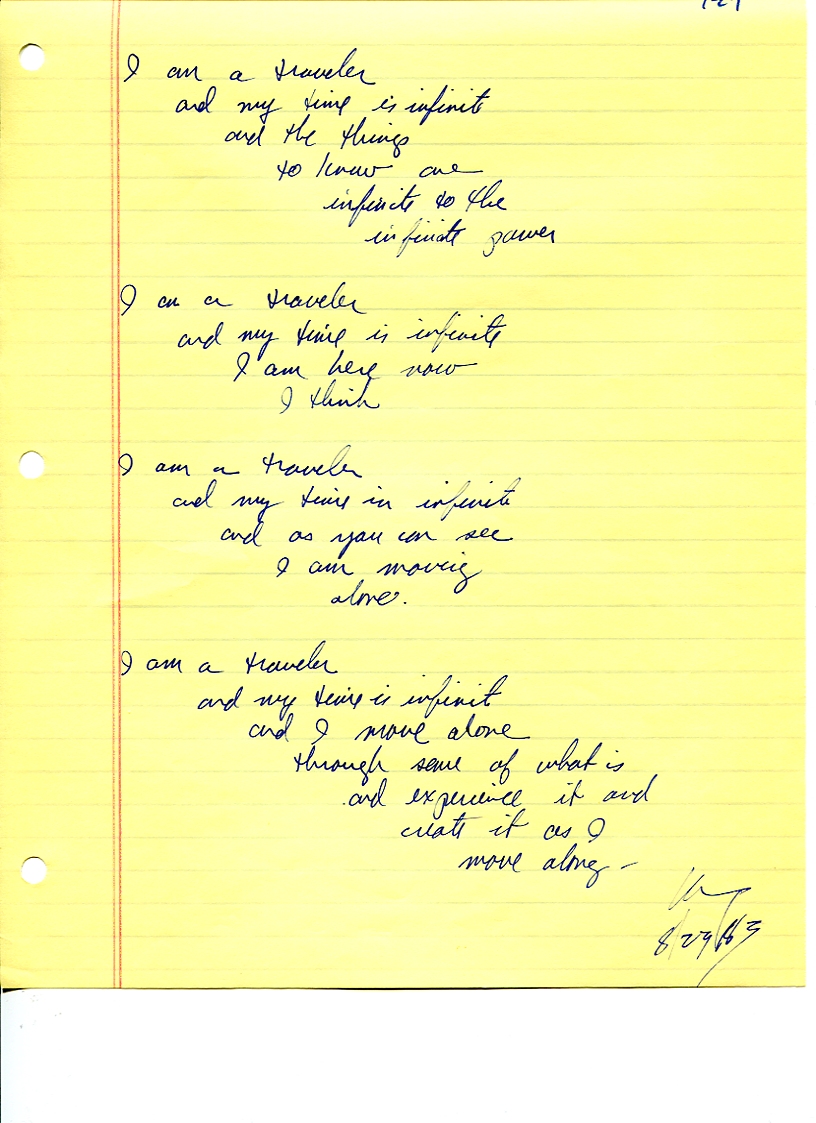 I am a traveler
and my time is infinite
and the things
to know are
infinite to the
infinite power
I am a traveler
and my time is infinite
I am here now
I think
I am a traveler
and my time in infinite
and as you can see
I am moving
alone.
I am a traveler
and my time is infinit
and I move alone
through some of what is
and experience it and
create it as I
move along –
8/29/83